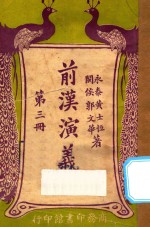 永泰黄士恒
閩侯郭文華
著
前漢演義
第三冊
商務印書館印行